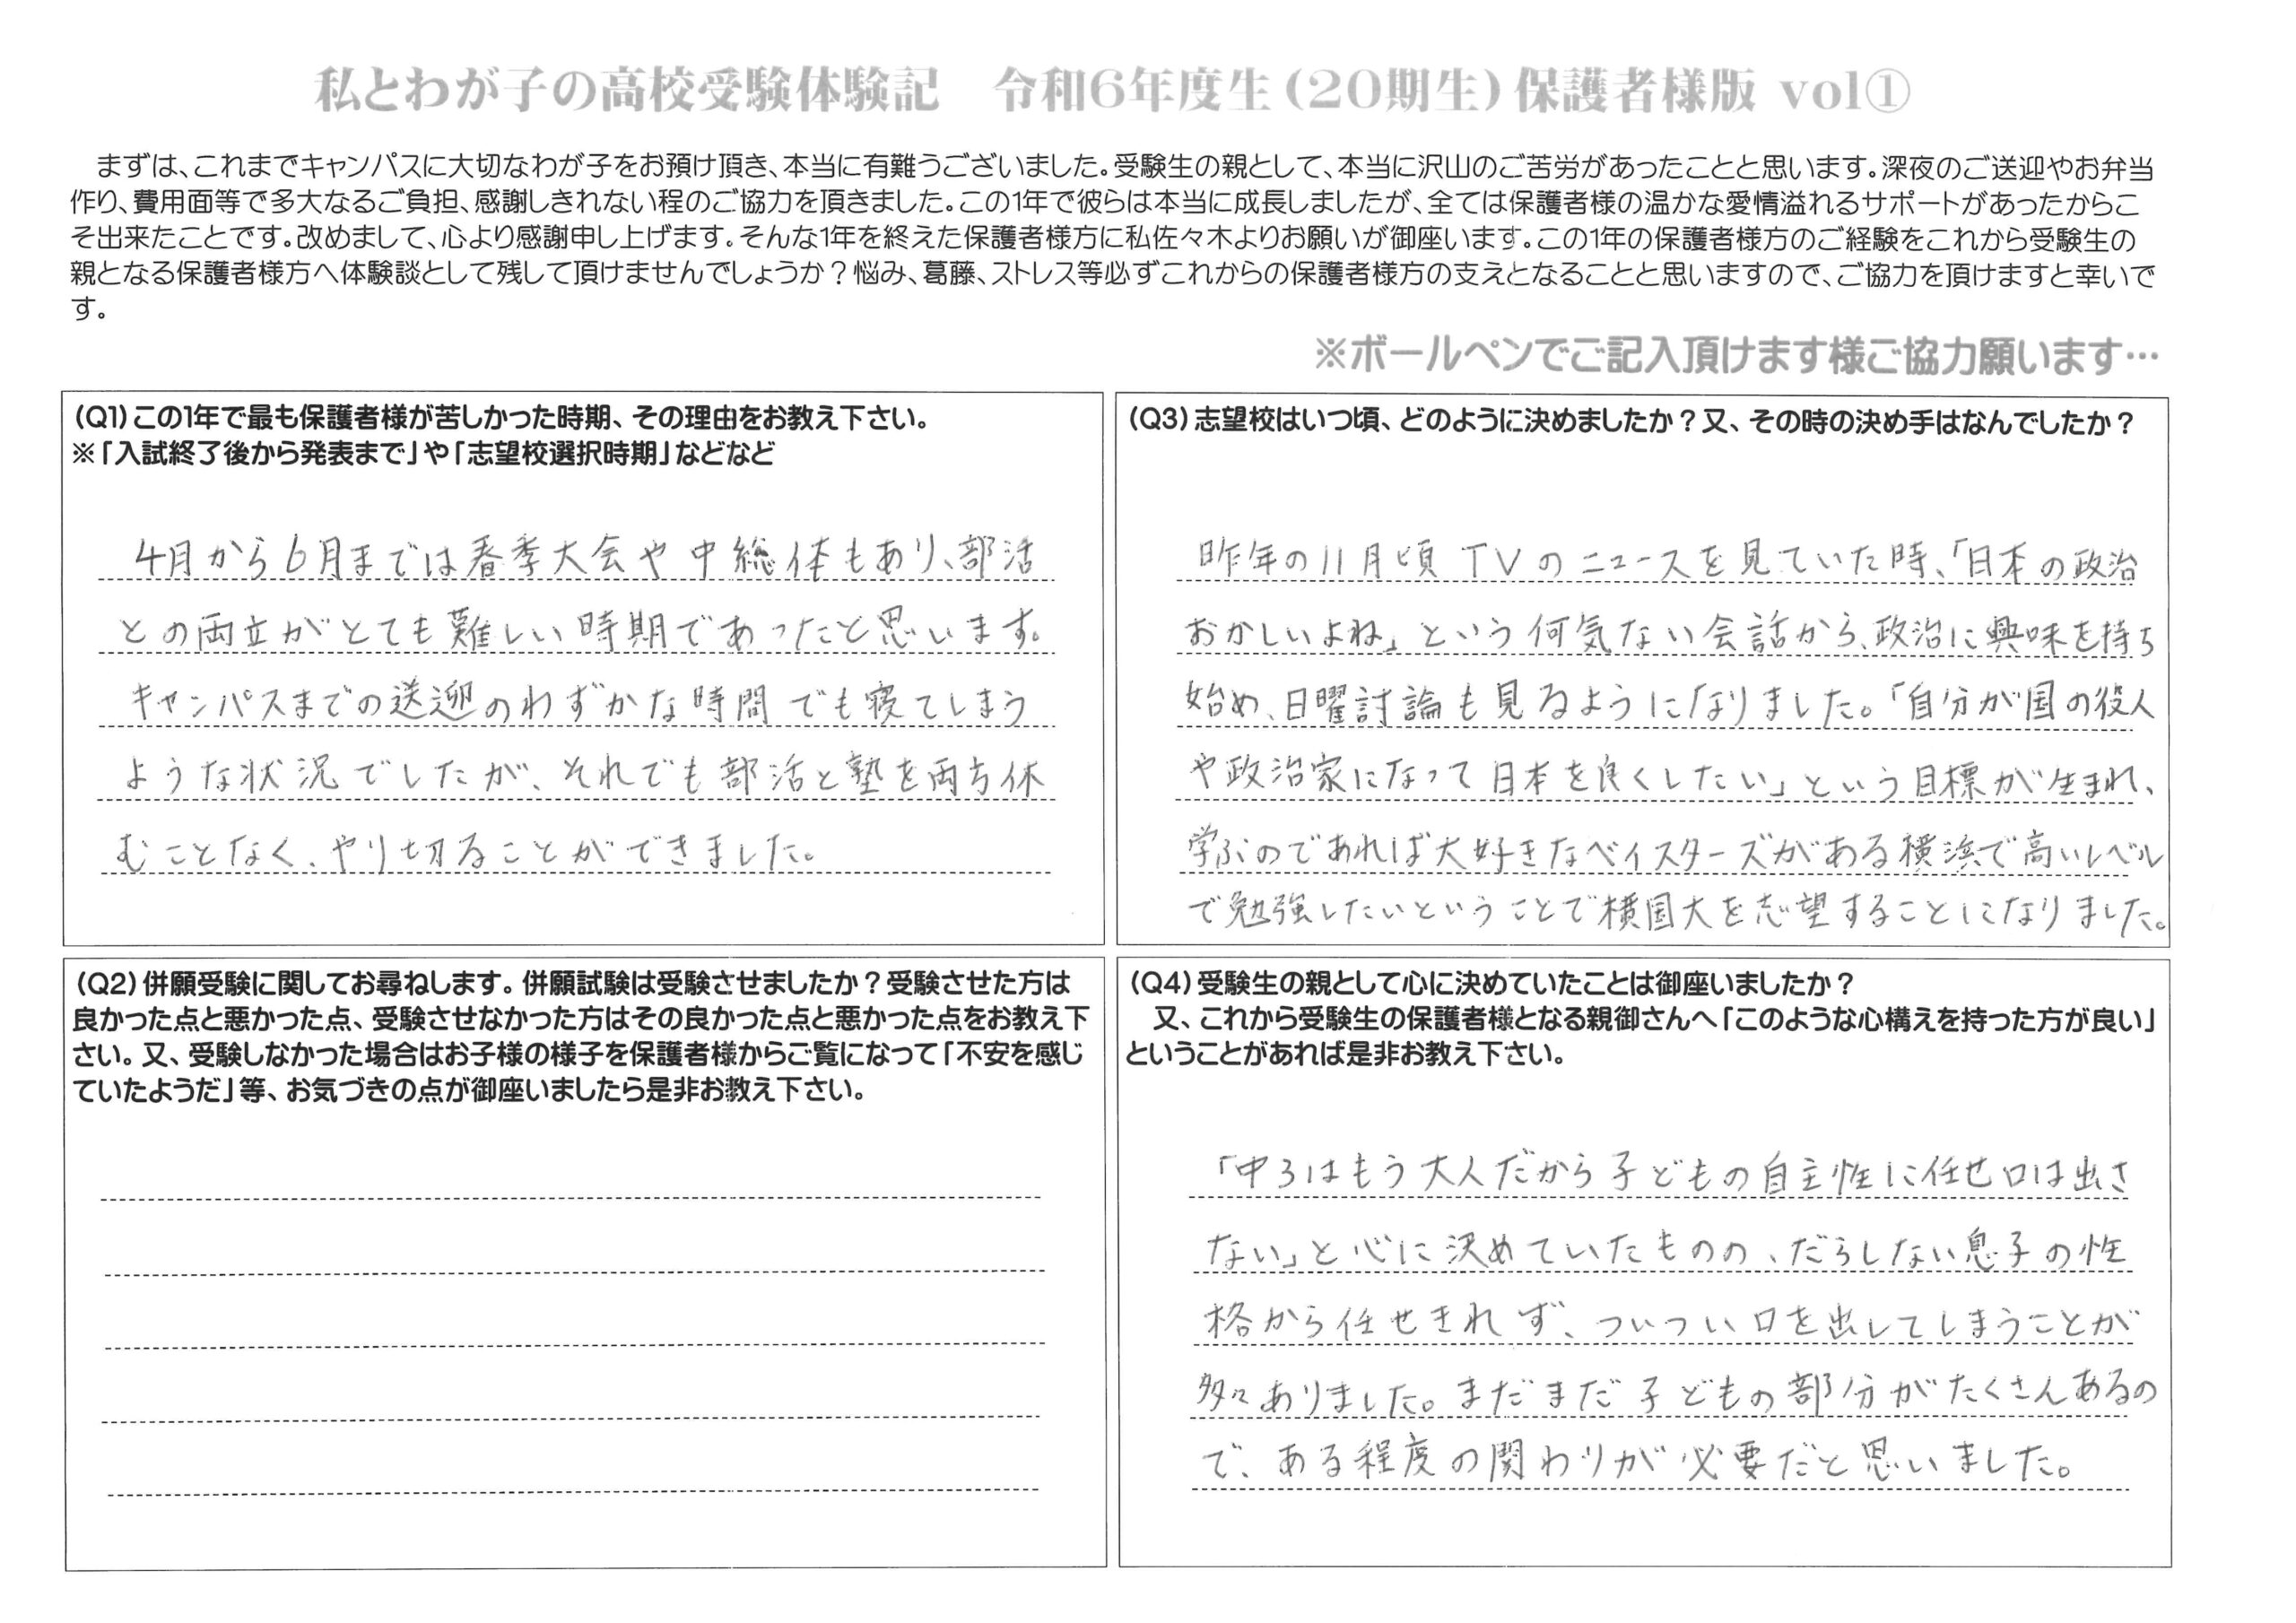 私とわが子の高校受験体験記　令和6年度生（20期生）保護者様版 vol①
まずは、これまでキャンパスに大切なわが子をお預け頂き、本当に有難うございました。受験生の親として、本当に沢山のご苦労があったことと思います。深夜のご送迎やお弁当
作り、費用面等で多大なるご負担、感謝しきれない程のご協力を頂きました。この1年で彼らは本当に成長しましたが、全ては保護者様の温かな愛情溢れるサポートがあったからこ
そ出来たことです。改めまして、心より感謝申し上げます。そんな1年を終えた保護者様方に私佐々木よりお願いが御座います。この1年の保護者様方のご経験をこれから受験生の
親となる保護者様方へ体験談として残して頂けませんでしょうか？悩み、葛藤、ストレス等必ずこれからの保護者様方の支えとなることと思いますので、ご協力を頂けますと幸いで
す。
※ボールペンでご記入頂けます様ご協力願います…
（Q1）この1年で最も保護者様が苦しかった時期、その理由をお教え下さい。
※「入試終了後から発表まで」や「志望校選択時期」などなど
4月から6月までは春季大会や中総体もあり、部活
との両立がとても難しい時期であったと思います。
キャンパスまでの送迎のわずかな時間でも寝てしまう
ような状況でしたが、それでも部活と塾を両方休
むことなく、やり切ることができました。
（Q2）併願受験に関してお尋ねします。併願試験は受験させましたか？受験させた方は
良かった点と悪かった点、受験させなかった方はその良かった点と悪かった点をお教え下
さい。又、受験しなかった場合はお子様の様子を保護者様からご覧になって「不安を感じ
ていたようだ」等、お気づきの点が御座いましたら是非お教え下さい。
（Q3）志望校はいつ頃、どのように決めましたか？又、その時の決め手はなんでしたか？
昨年の11月頃TVのニュースを見ていた時、「日本の政治
おかしいよね」という何気ない会話から、政治に興味を持ち
始め、日曜討論も見るようになりました。「自分が国の役人
や政治家になって日本を良くしたい」という目標が生まれ、
学ぶのであれば大好きなベイスターズがある横浜で高いレベル
で勉強したいということで横国大を志望することになりました。
（Q4）受験生の親として心に決めていたことは御座いましたか？
又、これから受験生の保護者様となる親御さんへ「このような心構えを持った方が良い」
ということがあれば是非お教え下さい。
「中3はもう大人だから子どもの自主性に任せ口は出さ
ない」と心に決めていたものの、だらしない息子の性
格から任せきれず、ついつい口を出してしまうことが
多々ありました。まだまだ子どもの部分がたくさんあるの
で、ある程度の関わりが必要だと思いました。